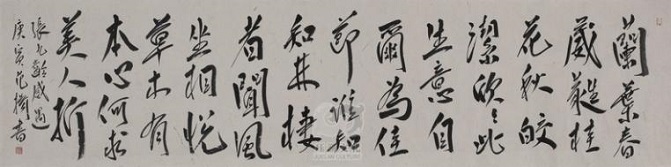 蘭葉春
葳蕤桂
花秋皎
潔欣〻此
生意自
爾為佳
節誰知
知林棲
者聞風
坐相悅
草木有
本心何求
美人折
張九齡感遇
庚寅范書